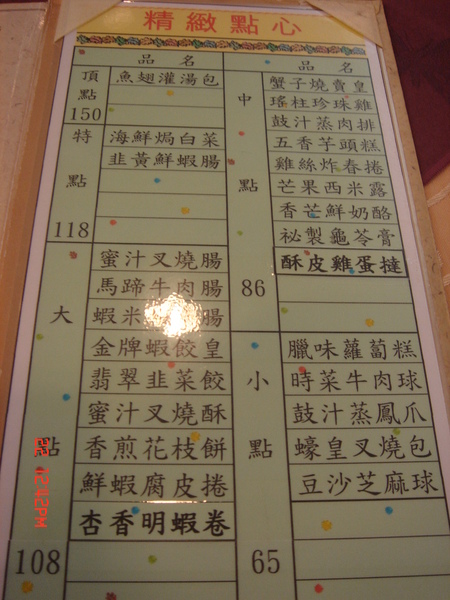 精緻點心
品名
頂點
150
魚翅灌湯包
特點
118
海鮮焗白菜
韭黃鮮蝦腸
大點
108
蜜汁叉燒腸
馬蹄牛肉腸
蝦米 腸
金牌蝦餃皇
翡翠韭菜餃
蜜汁叉燒酥
香煎花枝餅
鮮蝦腐皮捲
杏香明蝦卷
品名
中點
86
蟹子燒賣皇
瑤柱珍珠雞
鼓汁蒸肉排
五香芋頭糕
雞絲炸春捲
芒果西米露
香芒鮮奶酪
祕製龜苓膏
酥皮雞蛋撻
小點
65
臘味蘿蔔糕
時菜牛肉球
鼓汁蒸鳳爪
蠔皇叉燒包
豆沙芝麻球
12:42PM